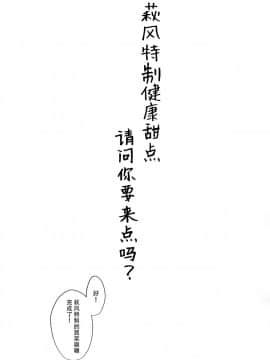 萩风特制健康甜点
请问你要来点吗？
好！
萩风特制的蔬菜蛋糕
完成了！